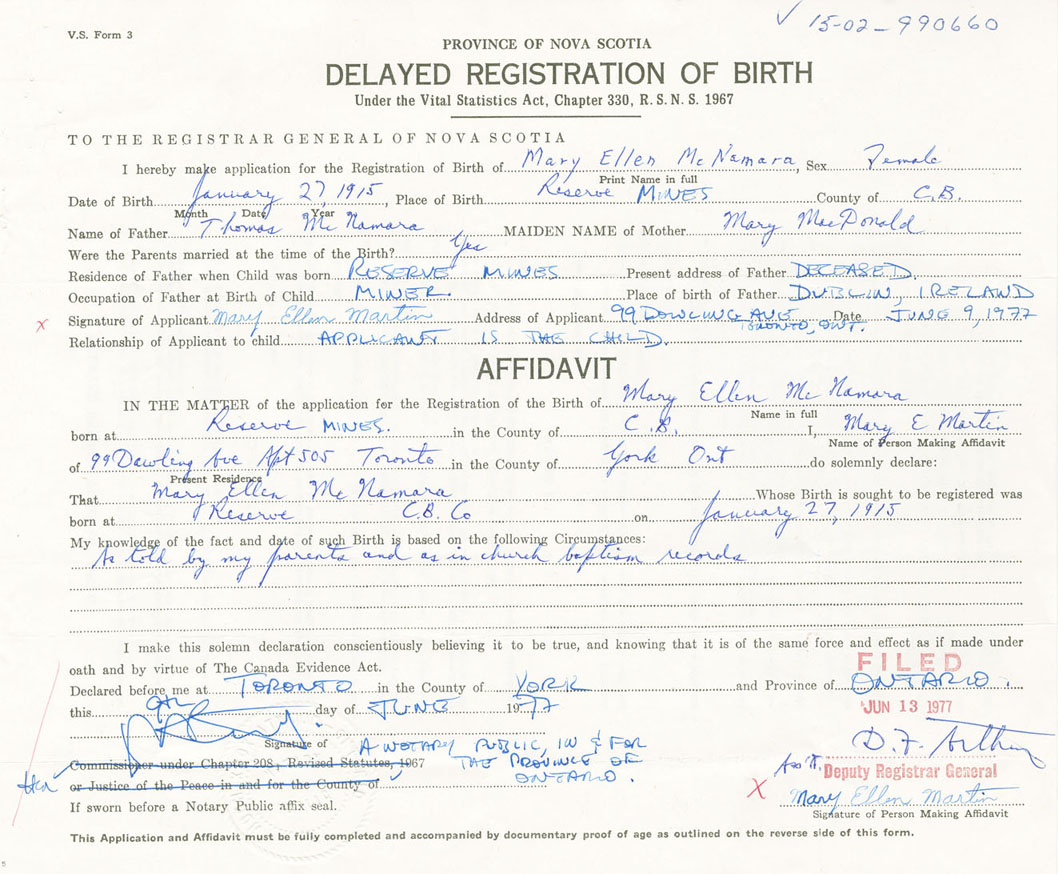 V.S. Form 3
✓ 15-02-990660
PROVINCE OF NOVA SCOTIA
DELAYED REGISTRATION OF BIRTH
Under the Vital Statistics Act, Chapter 330, R.S.N.S. 1967
TO THE REGISTRAR GENERAL OF NOVA SCOTIA
I hereby make application for the Registration of Birth of Mary Ellen McNamara, Sex Female
Print Name in full
Date of Birth January 27, 1915, Place of Birth Reserve MINES County of C.B.
Month Date Year
Name of Father Thomas McNamara MAIDEN NAME of Mother Mary MacDonald
Were the Parents married at the time of the Birth? Yes
Residence of Father when Child was born RESERVE MINES Present address of Father DECEASED
Occupation of Father at Birth of Child MINER. Place of birth of Father DUBLIN, IRELAND
x Signature of Applicant Mary Ellen Martin Address of Applicant 99 DOWLING AVE TORONTO, ONT. Date JUNE 9, 1977
Relationship of Applicant to child APPLICANT IS THE CHILD.
AFFIDAVIT
IN THE MATTER of the application for the Registration of the Birth of Mary Ellen McNamara
Name in full
born at Reserve MINES. in the County of C.B. I, Mary E Martin
Name of Person Making Affidavit
of 99 Dowling Ave Apt 505 Toronto in the County of York Ont do solemnly declare:
Present Residence
That Mary Ellen McNamara Whose Birth is sought to be registered was
born at Reserve C.B. Co on January 27, 1915
My knowledge of the fact and date of such Birth is based on the following Circumstances:
As told by my parents and as in church baptism records
I make this solemn declaration conscientiously believing it to be true, and knowing that it is of the same force and effect as if made under
oath and by virtue of The Canada Evidence Act.
FILED
Declared before me at TORONTO in the County of YORK and Province of ONTARIO.
this 9th day of JUNE 1977
JUN 13 1977
Signature of A NOTARY PUBLIC, IN & FOR
Commissioner under Chapter 208, Revised Statutes, 1967 THE PROVINCE OF
or Justice of the Peace in and for the County of ONTARIO.
Deputy Registrar General
If sworn before a Notary Public affix seal.
x Mary Ellen Martin
Signature of Person Making Affidavit
This Application and Affidavit must be fully completed and accompanied by documentary proof of age as outlined on the reverse side of this form.